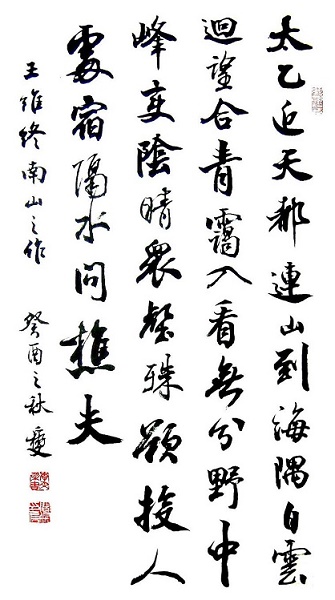 太乙近天都連山到海隅白雲
迴望合青靄入看無分野中
峰变陰晴眾壑殊願投人
處宿隔水問樵夫
王維終南山之作 癸酉之秋